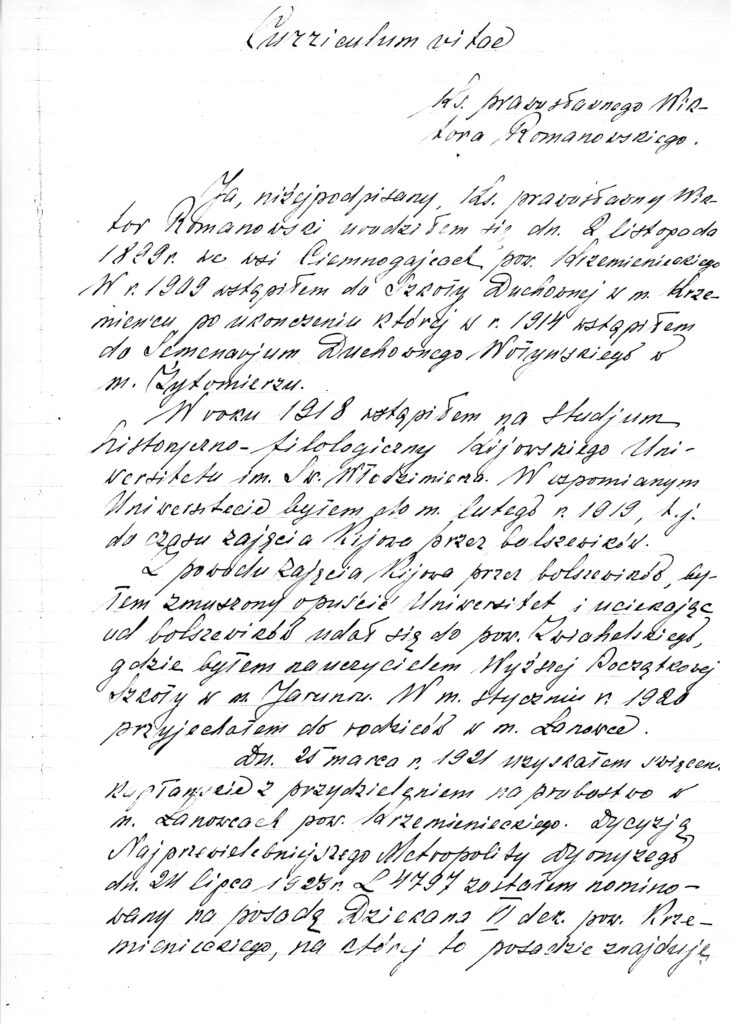 Curriculum vitae
Ks. prawosławnego Wik-
tora Romanowskiego.
Ja, niżejpodpisany, Ks. prawosławny Wik-
tor Romanowski urodziłem się dn. 2 listopada
1899 r. we wsi Ciemnogajcach pow. Krzemienieckiego
W r. 1909 wstąpiłem do Szkoły Duchownej w m. Krze-
mieńcu po ukończeniu której w r. 1914 wstąpiłem
do Semenarjum Duchownego Wołyńskiego w
m. Żytomierzu.
W roku 1918 wstąpiłem na studjum
historyczno-filologiczny Kijowskiego Uni-
wersitetu im. Św. Włodzimierza. W wspomianym
Uniwersitecie byłem do m. lutego r. 1919, t.j.
do czasu zajęcia Kijowa przez bolszewików.
Z powodu zajęcia Kijowa przez bolszewików, by-
łem zmuszony opuścić Uniwersitet i uciekając
od bolszewików udał się do pow. Zwiahelskiego,
gdzie byłem nauczycielem Wyższej Początkowej
Szkoły w m. Jaruniu. W m. styczniu r. 1920
przyjechałem do rodziców w m. Łanowce.
Dn. 25 marca r. 1921 uzyskałem święcen.
kapłańskie z przydzielęniem na probostwo w
m. Łanowcach pow. Krzemienieckiego. Dycyzją
Najprzewielebniejszego Metropolity Dyonyzego
dn. 24 lipca 1923 r. L 4797 zostałem nomino-
wany na posadę Dziekana VI dek. pow. Krze-
mienieckiego, na której to posadzie znajduję